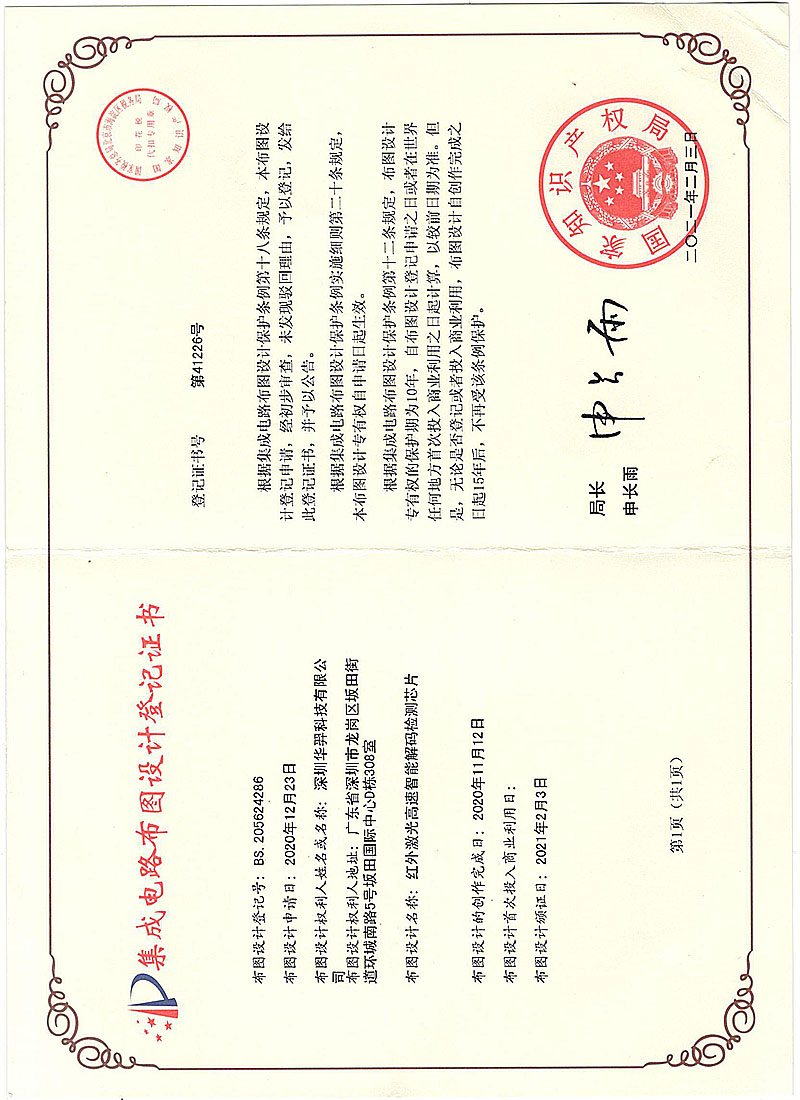 集成电路布图设计登记证书
布图设计登记号：BS. 205624286
布图设计申请日：2020年12月23日
布图设计权利人姓名或名称：深圳华羿科技有限公
司
布图设计权利人地址：广东省深圳市龙岗区坂田街
道环城南路5号坂田国际中心D栋308室
布图设计名称：红外激光高速智能解码检测芯片
布图设计的创作完成日：2020年11月12日
布图设计首次投入商业利用日：
布图设计颁证日：2021年2月3日
第1页（共1页）
登记证书号 第41226号
根据集成电路布图设计保护条例第十八条规定，本布图设
计登记申请，经初步审查，未发现驳回理由，予以登记，发给
此登记证书，并予以公告。
根据集成电路布图设计保护条例实施细则第二十条规定，
本布图设计专有权自申请日起生效。
根据集成电路布图设计保护条例第十二条规定，布图设计
专有权的保护期为10年，自布图设计登记申请之日或者在世界
任何地方首次投入商业利用之日起计算，以较前日期为准。但
是，无论是否登记或者投入商业利用，布图设计自创作完成之
日起15年后，不再受该条例保护。
局长
申长雨
申长雨
国家知识产权局
二〇二一年二月三日
印花税
代扣专用章
国家知识产权局